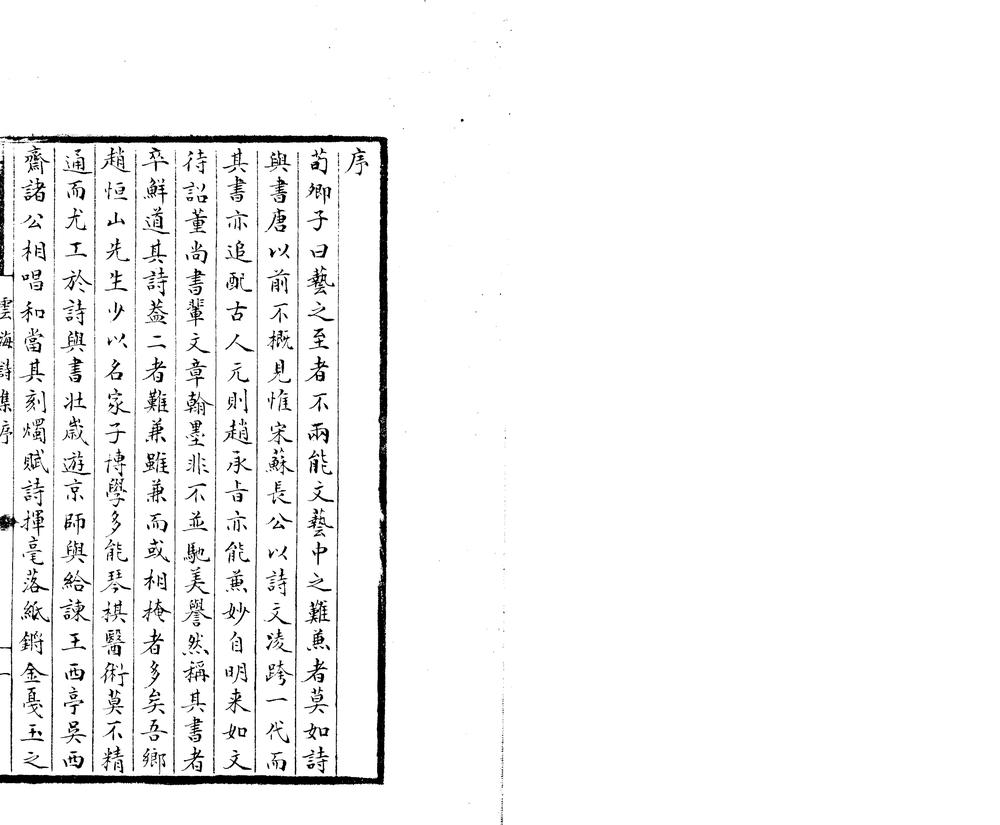 序
荀卿子曰藝之至者不兩能文藝中之難兼者莫如詩
與書唐以前不概見惟宋蘇長公以詩文凌跨一代而
其書亦追配古人元則趙承旨亦能兼妙自明来如文
待詔董尚書輩文章翰墨非不並馳美譽然稱其書者
卒鮮道其詩葢二者難兼雖兼而或相掩者多矣吾鄉
趙恒山先生少以名家子博學多能琴棋醫術莫不精
通而尤工於詩與書壯歲遊京師與給諫王西亭吳西
齋諸公相唱和當其刻燭賦詩揮毫落紙鏘金戛玉之
雲海詩集序
一